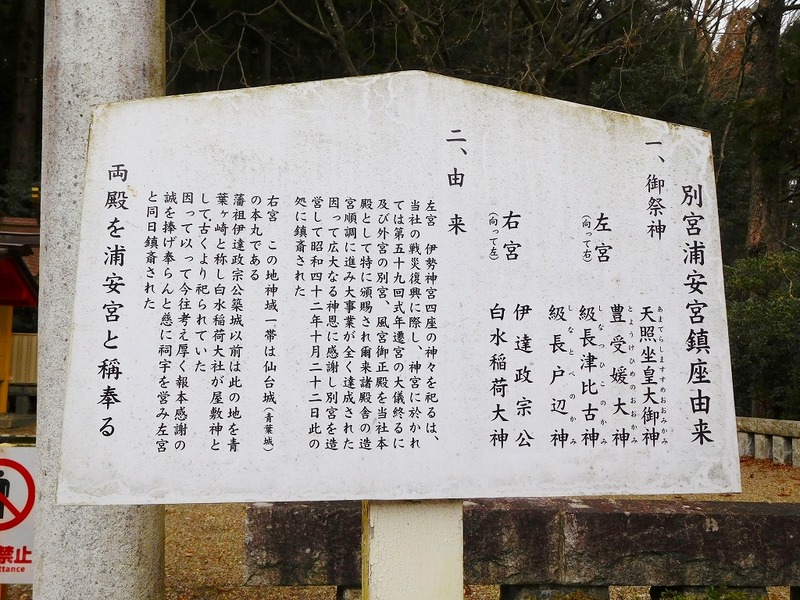 別宮浦安宮鎮座由来
一、御祭神
左宮
(向って右)
天照坐皇大御神
あまてらしますすめおおみかみ
豊受媛大神
とようけひめのおおかみ
級長津比古神
しなつひこのかみ
級長戸辺神
しなとべのかみ
右宮
(向って左)
伊達政宗公
白水稲荷大神
二、由来
左宮 伊勢神宮四座の神々を祀るは、
当社の戦災復興に際し、神宮に於かれ
ては第五十九回式年遷宮の大儀終るに
及び外宮の別宮、風宮御正殿を当社本
殿として特に頒賜され爾来諸殿舎の造
宮順調に進み大事業が全く達成された
因って広大なる神恩に感謝し別宮を造
営して昭和四十二年十月二十二日此の
処に鎮斎された
右宮 この地神域一帯は仙台城(青葉城)
の本丸である
藩祖伊達政宗公築城以前は此の地を青
葉ヶ崎と称し白水稲荷大社が屋敷神と
して古くより祀られていた
因って以って今往考え厚く報本感謝の
誠を捧げ奉らんと慈に祠宇を営み左宮
と同日鎮斎された
両殿を浦安宮と稱奉る
禁止
ttance